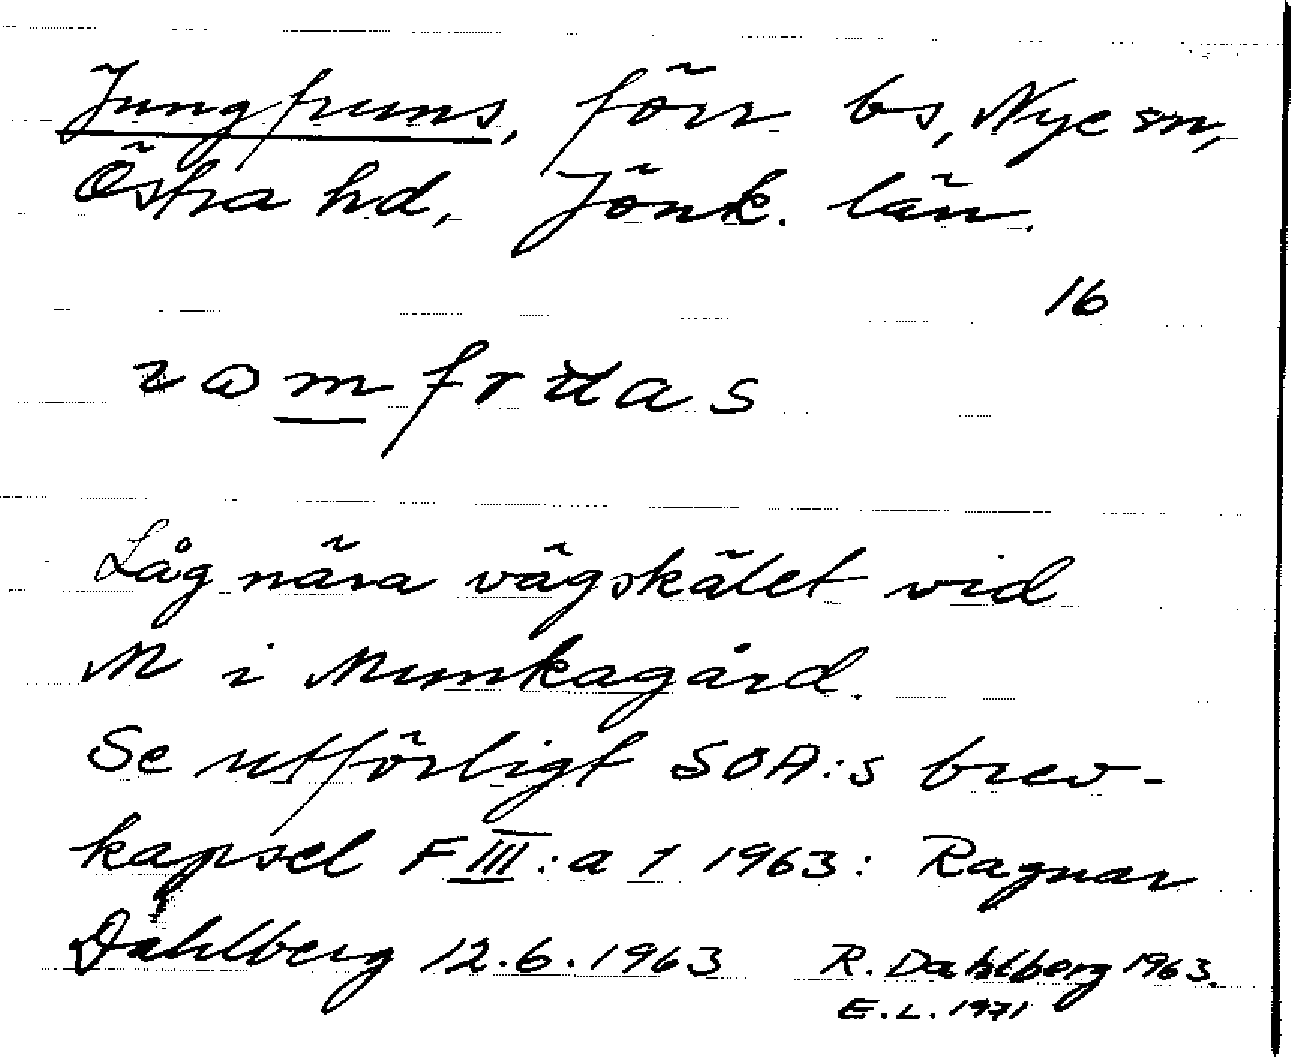 Jungfruns, förr bs, Nye sn,
Östra hd, Jönk. län.
16
Låg nära vägskälet vid
M i Munkagård.
Se utförligt SOA:s brev-
kapsel F III:a 1 1963: Ragnar
Dahlberg 12.6.1963 R. Dahlberg 1963.
E.L. 1971